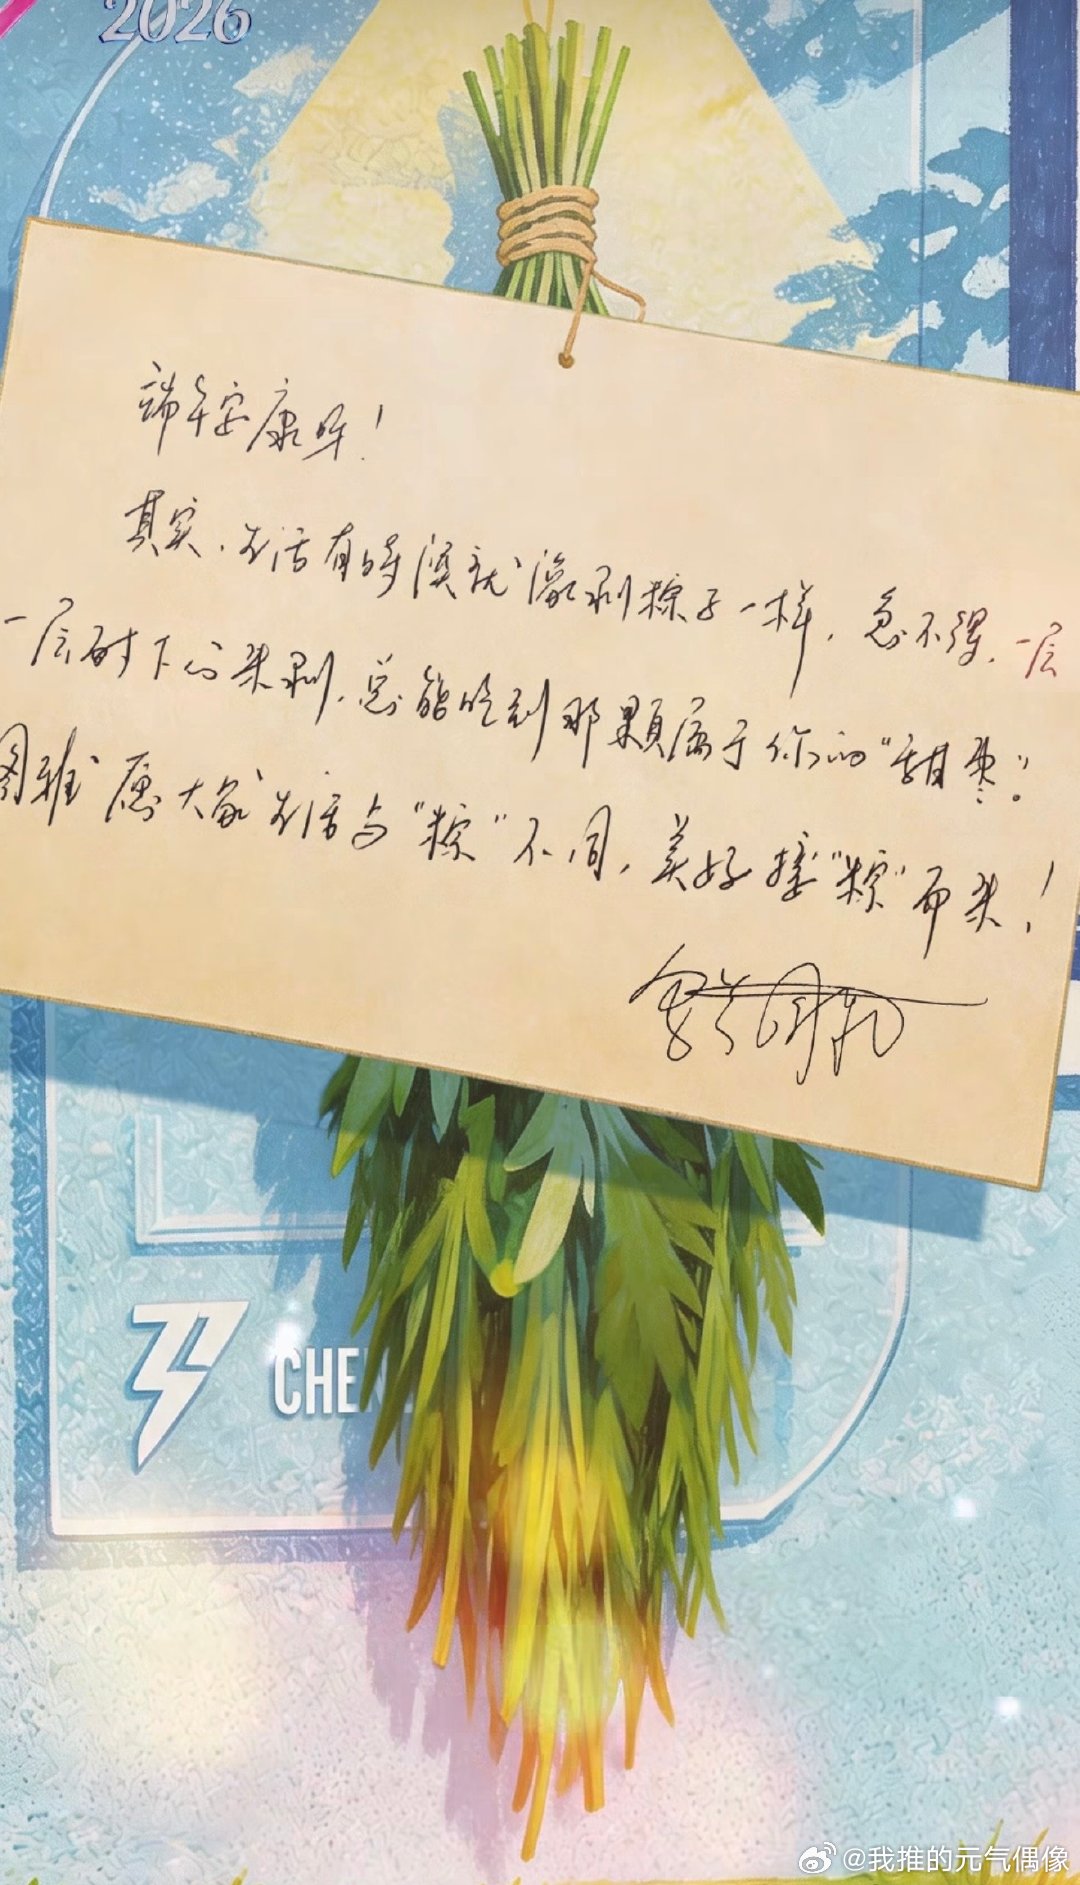 2026
端午安康呀！
其实，生活有时候就像剥粽子一样，急不得，一层
一层耐下心来剥，总能吃到那颗属于你的“甜枣”。
图雅 愿大家生活与“粽”不同，美好接“粽”而来！
CHE
@我推的元气偶像